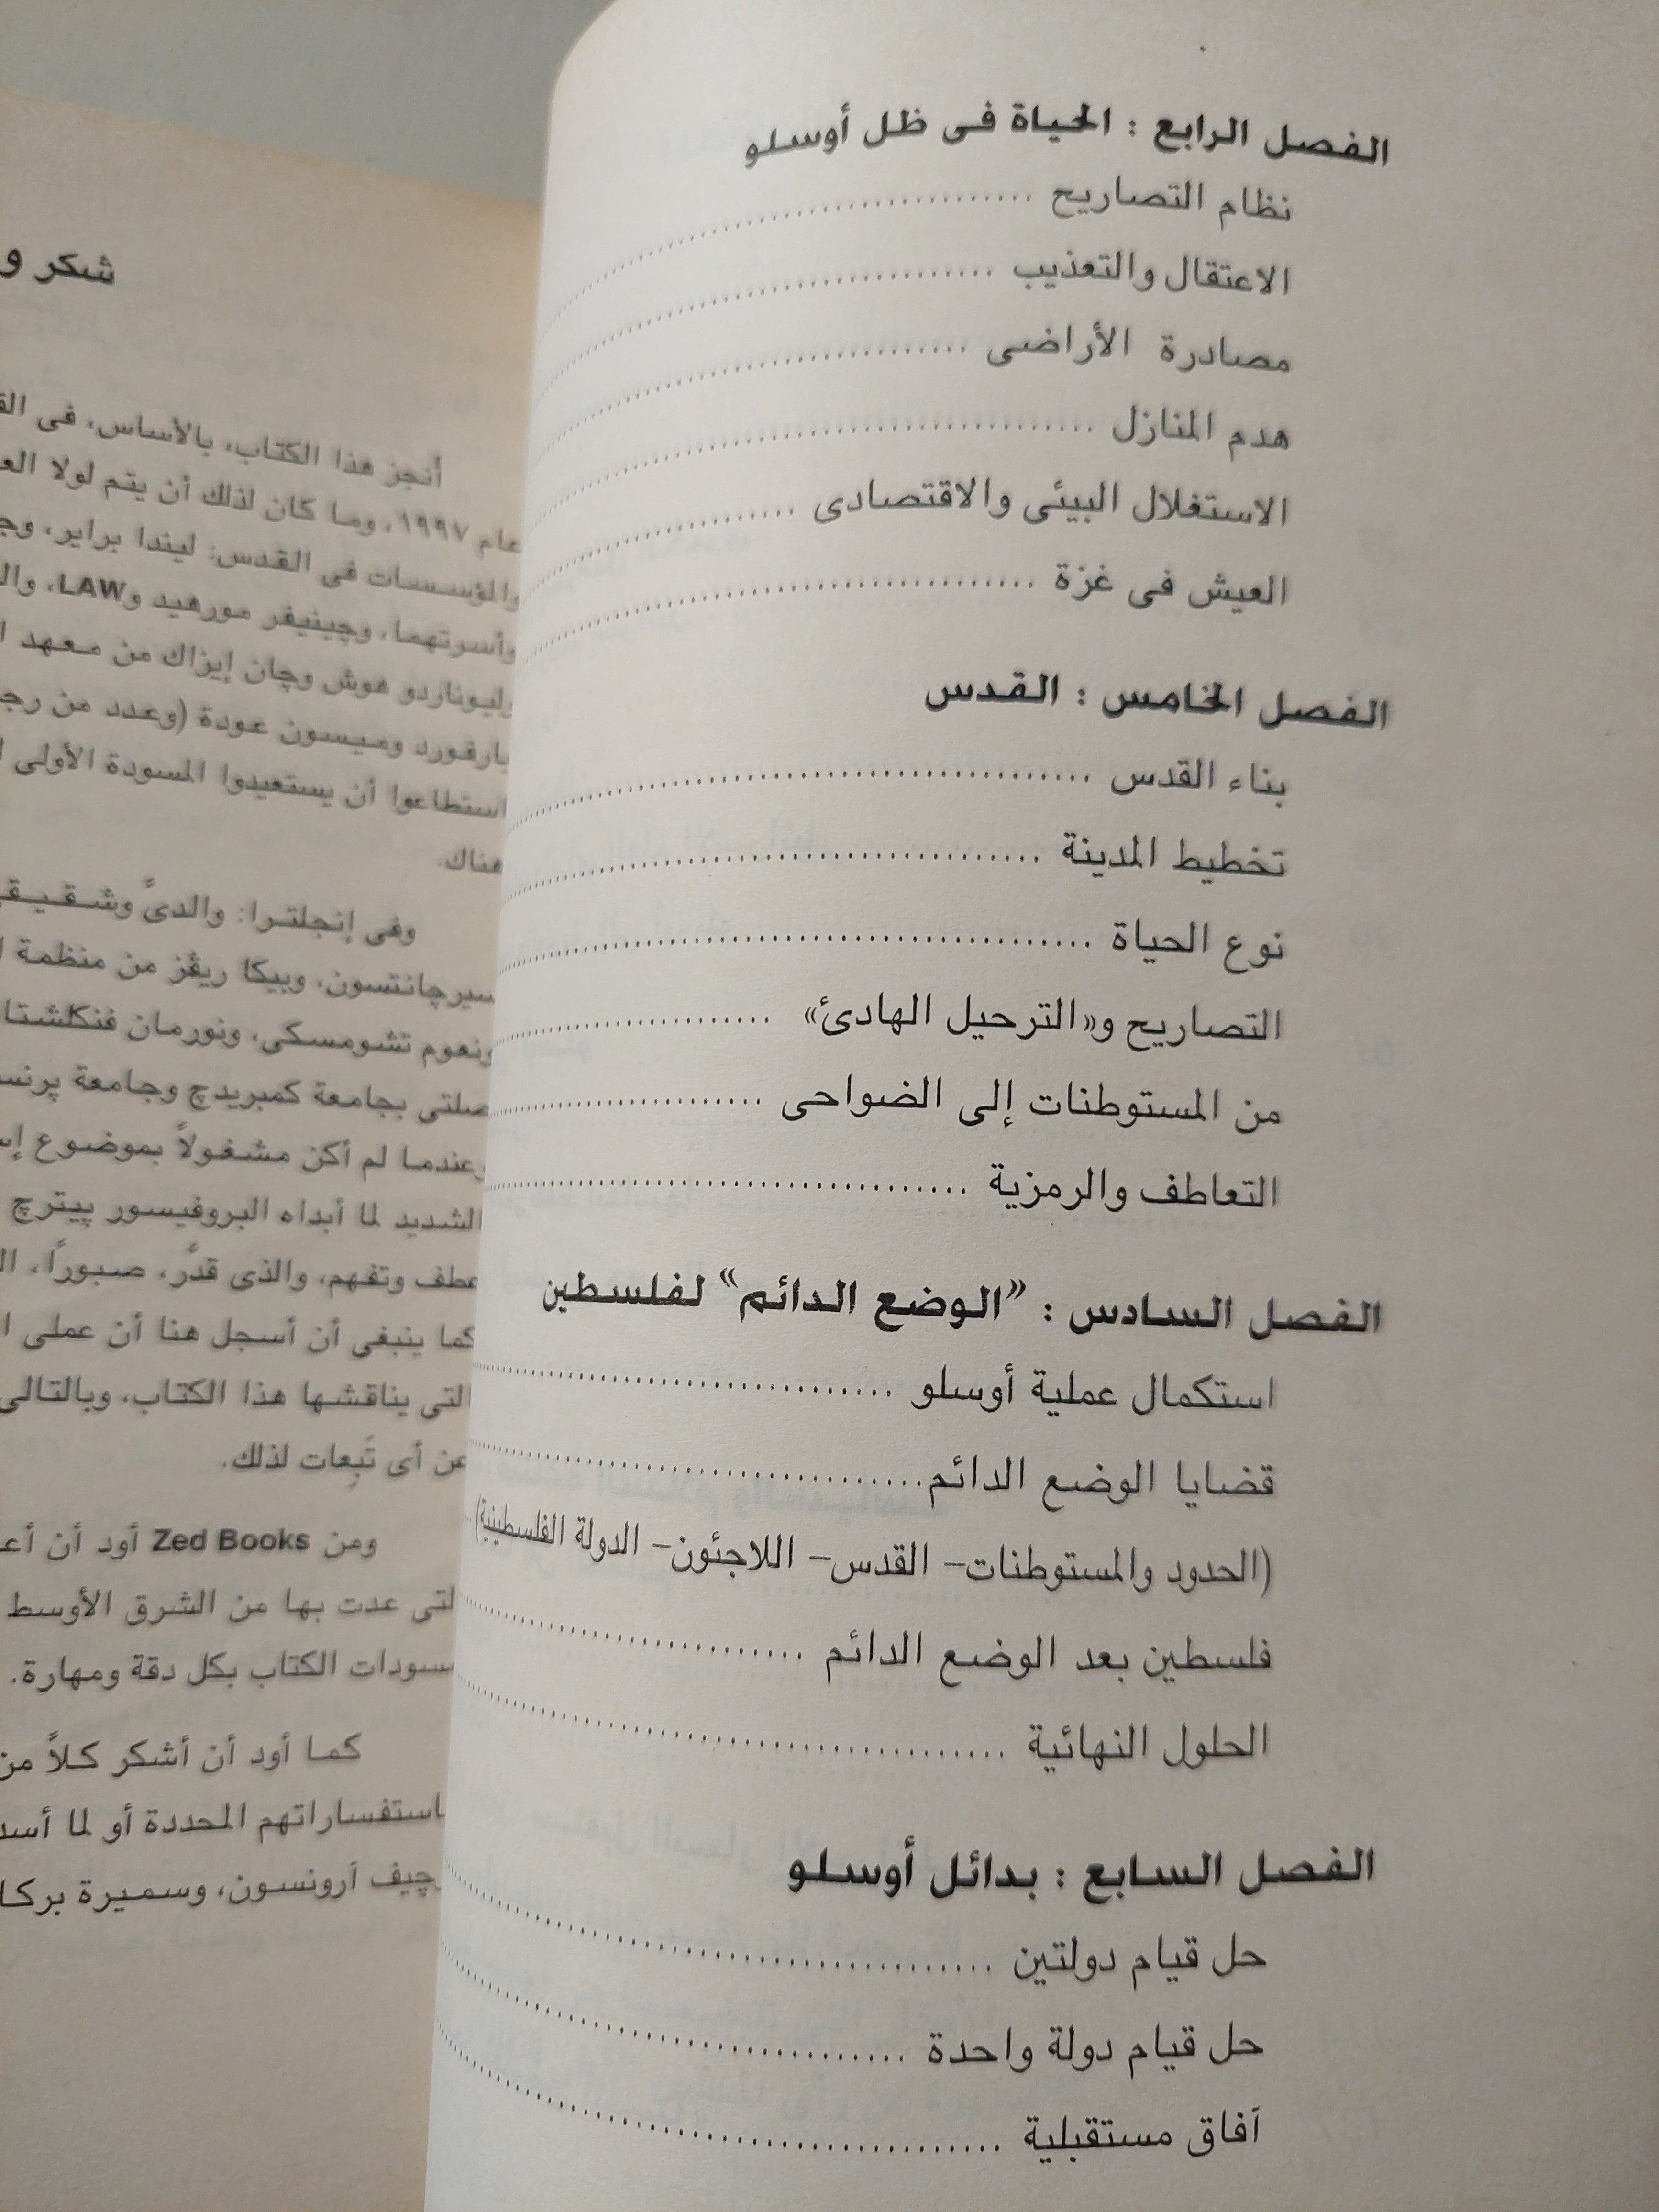 الفصل الرابع : الحياة فى ظل أوسلو
نظام التصاريح
الاعتقال والتعذيب
مصادرة الأراضى
هدم المنازل
الاستغلال البيئى والاقتصادى
العيش فى غزة
الفصل الخامس : القدس
بناء القدس
تخطيط المدينة
نوع الحياة
التصاريح و«الترحيل الهادئ»
من المستوطنات إلى الضواحى
التعاطف والرمزية
الفصل السادس : "الوضع الدائم" لفلسطين
استكمال عملية أوسلو
قضايا الوضع الدائم
(الحدود والمستوطنات– القدس– اللاجئون– الدولة الفلسطينية)
فلسطين بعد الوضع الدائم
الحلول النهائية
الفصل السابع : بدائل أوسلو
حل قيام دولتين
حل قيام دولة واحدة
آفاق مستقبلية
شكر و
أنجز هذا الكتاب، بالأساس، فى
عام ١٩٩٧، وما كان لذلك أن يتم لولا
والمؤسسات فى القدس: ليندا براير،
وأسرتهما، وچينيفر مورهيد وLAW،
وليوناردو هوش وچان إيزاك من معهد
بارفورد وميسون عودة (وعدد من
استطاعوا أن يستعيدوا المسودة الأولى
هناك.
وفى إنجلترا: والدىَّ
سيرچانتسون، وبيكا ريڤز من منظمة
ونعوم تشومسكى، ونورمان
صلتى بجامعة كمبريدچ وجامعة
وعندما لم أكن مشغولاً بموضوع
الشديد لما أبداه البروفيسور پيترچ
عطف وتفهم، والذى قدَّر، صبورًا،
كما ينبغى أن أسجل هنا أن عملى
التى يناقشها هذا الكتاب، وبالتالى
عن أى تَبِعات لذلك.
ومن Zed Books أود أن
التى عدت بها من الشرق الأوسط
مسودات الكتاب بكل دقة ومهارة.
كما أود أن أشكر كلاً من
باستفساراتهم المحددة أو لما
چيف آرونسون، وسميرة